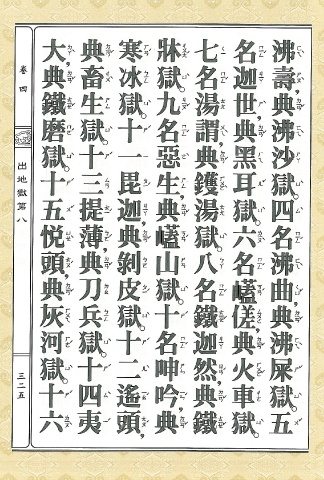 沸壽，典沸沙獄。四名沸曲，典沸屎獄。五
名迦世，典黑耳獄。六名傞，典火車獄。
七名湯謂，典鑊湯獄。八名鐵迦然，典鐵
牀獄。九名惡生，典山獄。十名呻吟，典
寒冰獄。十一毘迦，典剝皮獄。十二遙頭，
典畜生獄。十三提薄，典刀兵獄。十四夷
大，典鐵磨獄。十五悅頭，典灰河獄。十六
卷四
出地獄第八
三二五